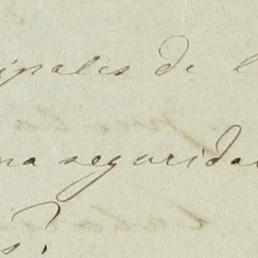 ipales de l
na seguridad
s.